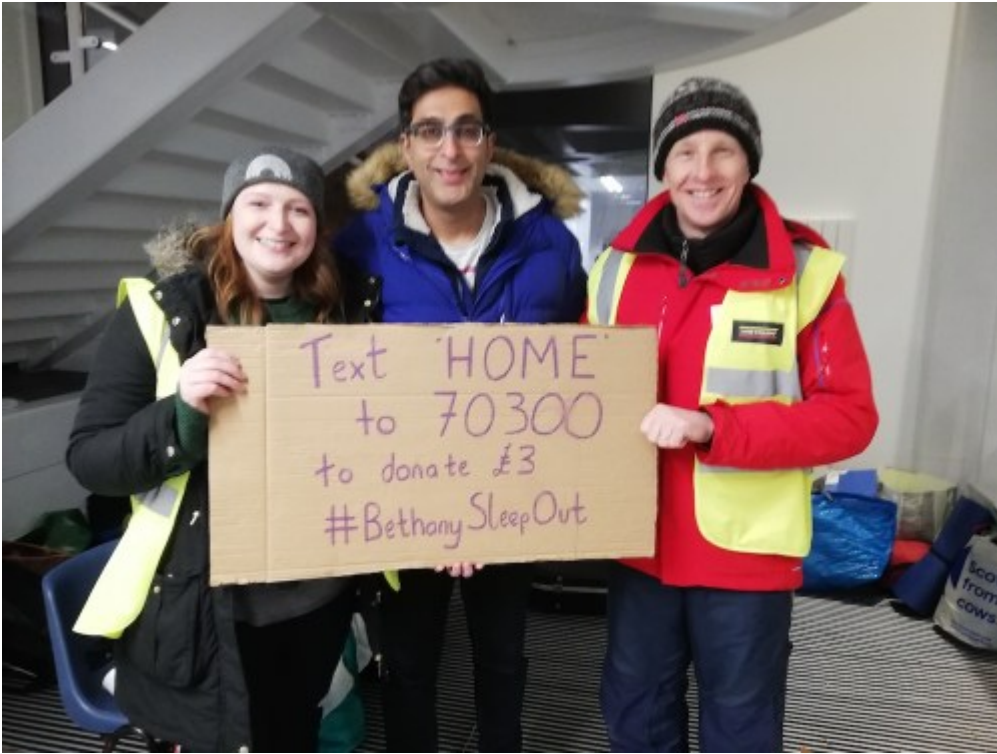 Text 'HOME'
to 70300
to donate £3
#BethanySleepOut
from
cows